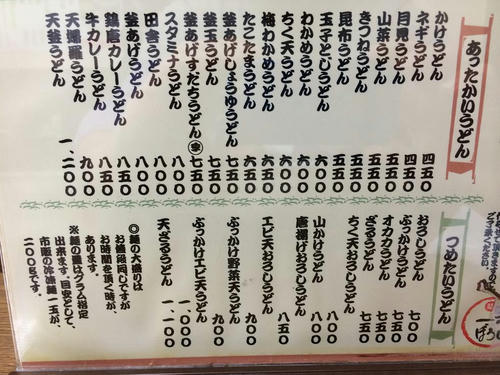 あったかいうどん
かけうどん 四五〇
ネギうどん 四五〇
月見うどん 五五〇
山菜うどん 五五〇
きつねうどん 五五〇
昆布うどん 五五〇
玉子とじうどん 六〇〇
わかめうどん 六〇〇
ちく天うどん 六〇〇
梅わかめうどん 六〇〇
たこたまうどん 六五〇
釜あげしょうゆうどん 七五〇
釜玉うどん 七五〇
釜あげすだちうどん 七五〇
スタミナうどん 八〇〇
田舎うどん 八〇〇
釜あげうどん 八〇〇
鶏唐カレーうどん 八五〇
牛カレーうどん 八五〇
天婦羅うどん 九〇〇
天釜うどん 一、二〇〇
つめたいうどん
おろしうどん 七〇〇
ぶっかけうどん 七〇〇
オカカうどん 七五〇
ざるうどん 七五〇
ちく天おろしうどん 七五〇
山かけうどん 八〇〇
唐揚げおろしうどん 八〇〇
エビ天おろしうどん 八五〇
ぶっかけ野菜天うどん 九〇〇
ぶっかけエビ天うどん 九〇〇
天ざるうどん 一、〇〇〇
一、一〇〇
◎麺の大盛りは
お値段同じですが
お時間を頂く時が、
あります。
※麺の量はグラム指定
出来ます。目安として、
市販の冷凍麺一玉が
200gです。